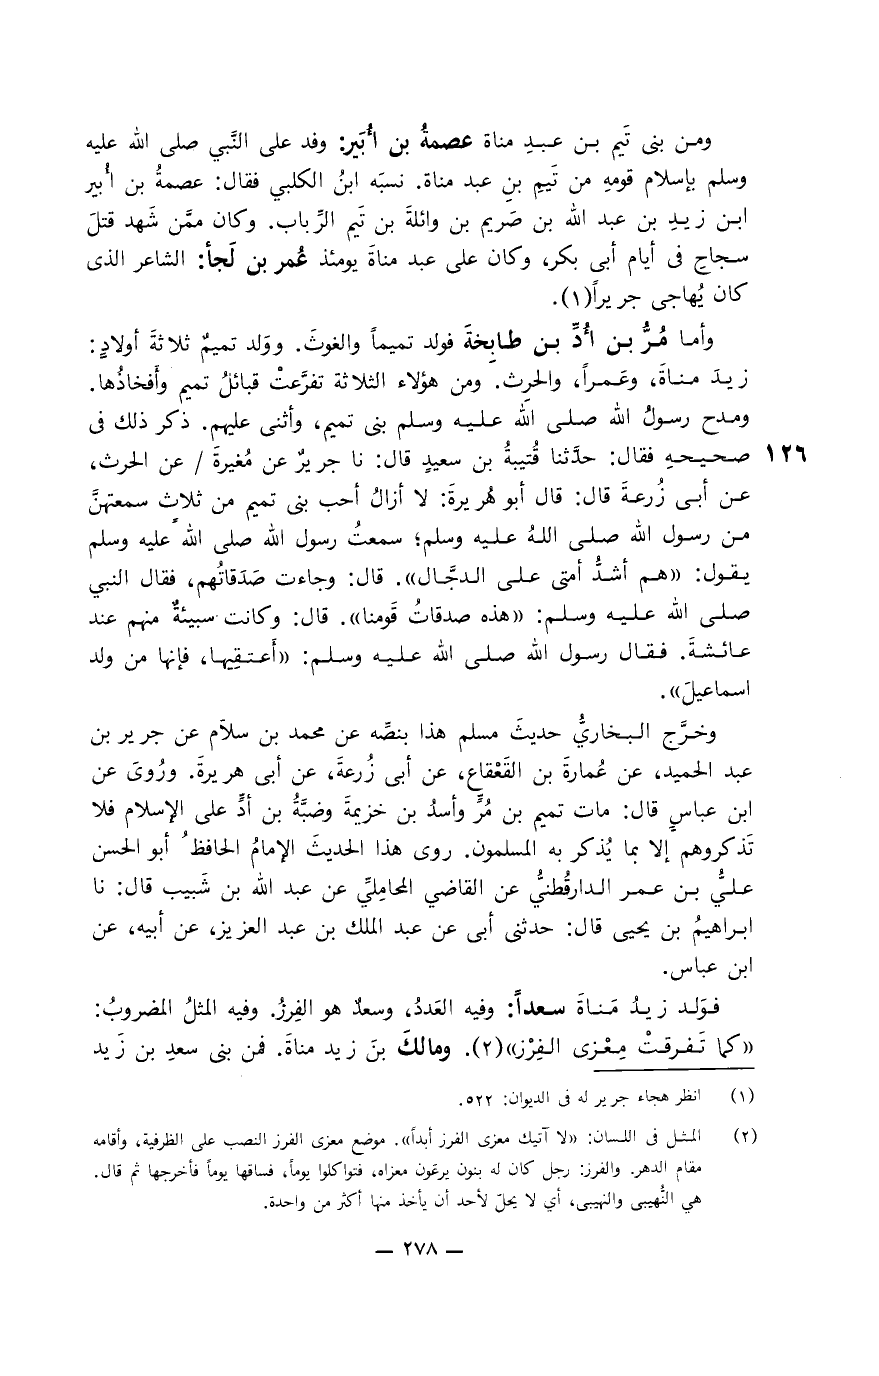 ومـن بنى تَيم بـن عـبـدِ مناة عصمةُ بن أُبَير: وفد على النَّبي صلى الله عليه
وسلم بإسلام قومهِ من تَيمِ بنِ عبد مناة. نسبَه ابنُ الكلبي فقال: عصمةُ بن أُبير
ابـن زيـدِ بن عبد الله بن صَريم بن وائلةَ بن تَيم الرِّباب. وكان ممَّن شَهد قتلَ
سـجاحِ فى أيام أبى بكر، وكان على عبد مناةَ يومئذ عُمر بن لَجأ: الشاعر الذى
كان يُهاجى جريراً(١).
وأما مُرُّ بـن أُدِّ بـن طابِخةَ فولد تميماً والغوثَ. ووَلد تميمٌ ثلاثةَ أولادٍ:
زيـدَ مـنـاةَ، وعَـمـراً، والحرِث. ومن هؤلاء الثلاثة تفرَّعتْ قبائلُ تميم وأَفخاذُها.
ومـدح رسـولُ الله صـلـى الله عـلـيـه وسـلم بنى تميم، وأثنى عليهم. ذكر ذلك فى
١٢٦ صـحـيـحـهِ فقال: حدَّثنا قُتيبةُ بن سعيدٍ قال: نا جريرٌ عن مُغيرةَ / عن الحرث،
عـن أبـى زُرعـةَ قال: قال أبو هُريرةَ: لا أزالُ أحب بنى تميم من ثلاثٍ سمعتهنَّ
مـن رسـول الله صـلـى اللهُ عـلـيـه وسلم؛ سمعتُ رسول الله صلى الله عليه وسلم
يـقـول: «هـم أشـدُّ أمتى عـلـى الـدجَّـال». قال: وجاءت صَدَقاتُهم، فقال النبي
صلـى الله عـلـيـه وسلـم: «هذه صدقاتُ قَومنا». قال: وكانت سبيئةٌ منهم عند
عـائـشـةَ. فـقـال رسـول الله صلـى الله عـلـيـه وسـلـم: «أَعتـقِيهـا، فإنها من ولد
اسماعيلَ».
وخـرَّج الـبـخاريُّ حديثَ مسلم هذا بنصِّه عن محمد بن سلاَم عن جرير بن
عبد الحميد، عن عُمارةَ بن القَعْقاع، عن أبى زُرعةَ، عن أبى هريرةَ. ورُوىَ عن
ابن عباسٍ قال: مات تميم بن مُرٍّ وأسدُ بن خزيمةَ وضبَّةُ بن أدٍّ على الإسلام فلا
تَذكروهم إلا بما يُذكر به المسلمون. روى هذا الحديثَ الإمامُ الحافظُ أبو الحسن
عـلـيُّ بـن عـمـر الـدارقُطنيُّ عن القاضي المحامِليِّ عن عبد الله بن شَبيب قال: نا
ابـراهيمُ بن يحيى قال: حدثنى أبى عن عبد الملك بن عبد العزيز، عن أبيه، عن
ابن عباس.
فـوَلـد زيـدُ مَـناةَ سـعـداً: وفيه العَددُ، وسعدٌ هو الفِرزُ. وفيه المثلُ المضروبُ:
«كما تَـفـرقـتْ مِـعْـزى الـفِرْز»(٢). ومالكَ بنَ زيد مناةَ. فمن بنى سعدِ بن زَيد
(١) انظر هجاء جرير له فى الديوان: ٥٢٢.
(٢) المـثـل فى اللـسان: «لا آتيك معزى الفرز أبداً». موضع معزى الفرز النصب على الظرفية، وأقامه
مقام الدهر. والفرز: رجل كان له بنون يرعَون معزاه، فتواكلوا يوماً، فساقها يوماً فأخرجها ثم قال.
هي النُّهيبى والنهيبى، أي لا يحلّ لأحد أن يأخذ منها أكثر من واحدة.
— ٢٧٨ —